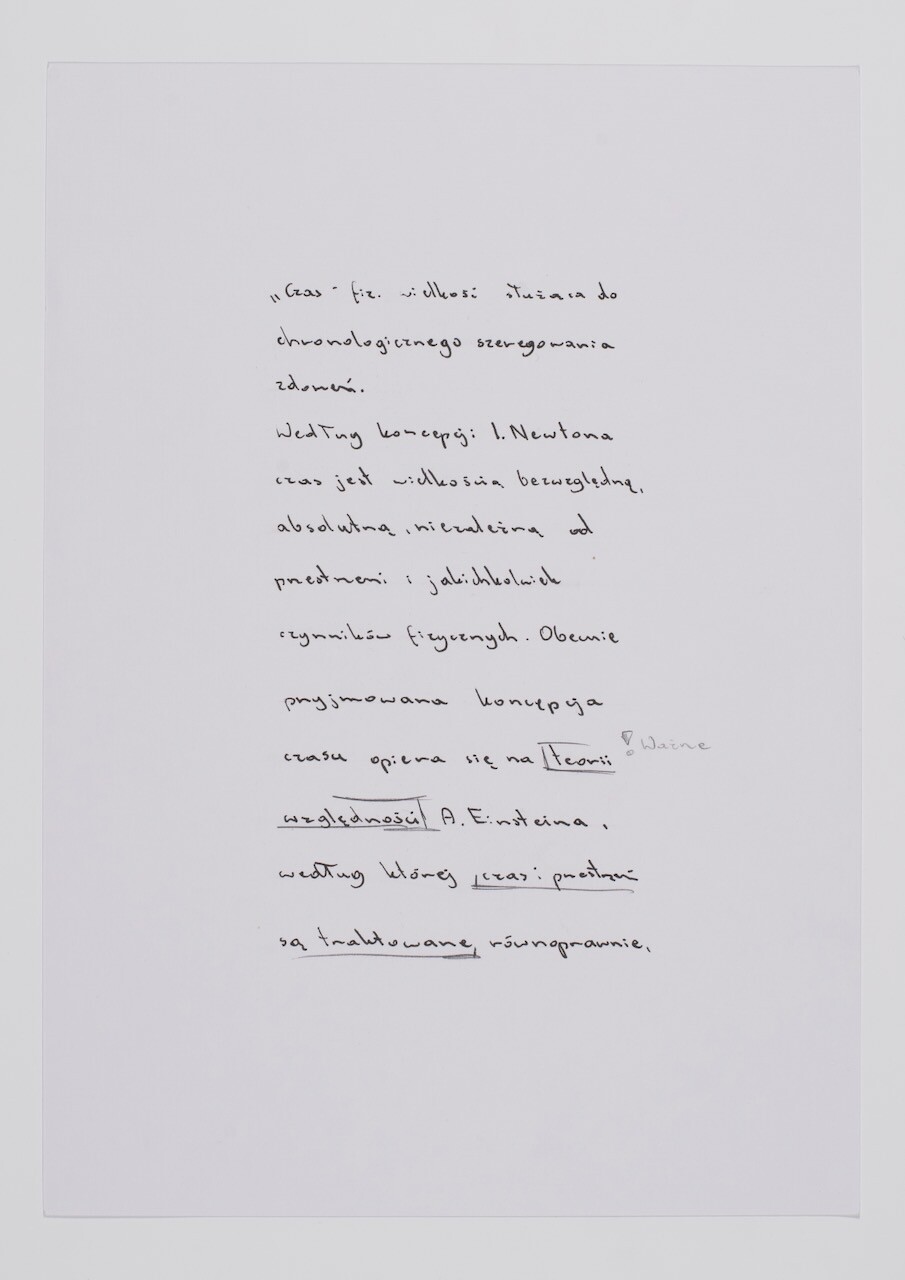 „Czas - fiz. wielkość służąca do
chronologicznego szeregowania
zdarzeń.
Według koncepcji I. Newtona
czas jest wielkością bezwzględną,
absolutną, niezależną od
przestrzeni i jakichkolwiek
czynników fizycznych. Obecnie
przyjmowana koncepcja
czasu opiera się na teorii ! Ważne
względności A. Einsteina,
według której czas i przestrzeń
są traktowane równoprawnie.